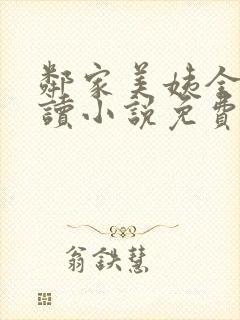 鄰家美姨全
讀小說免費
翁鉄慧